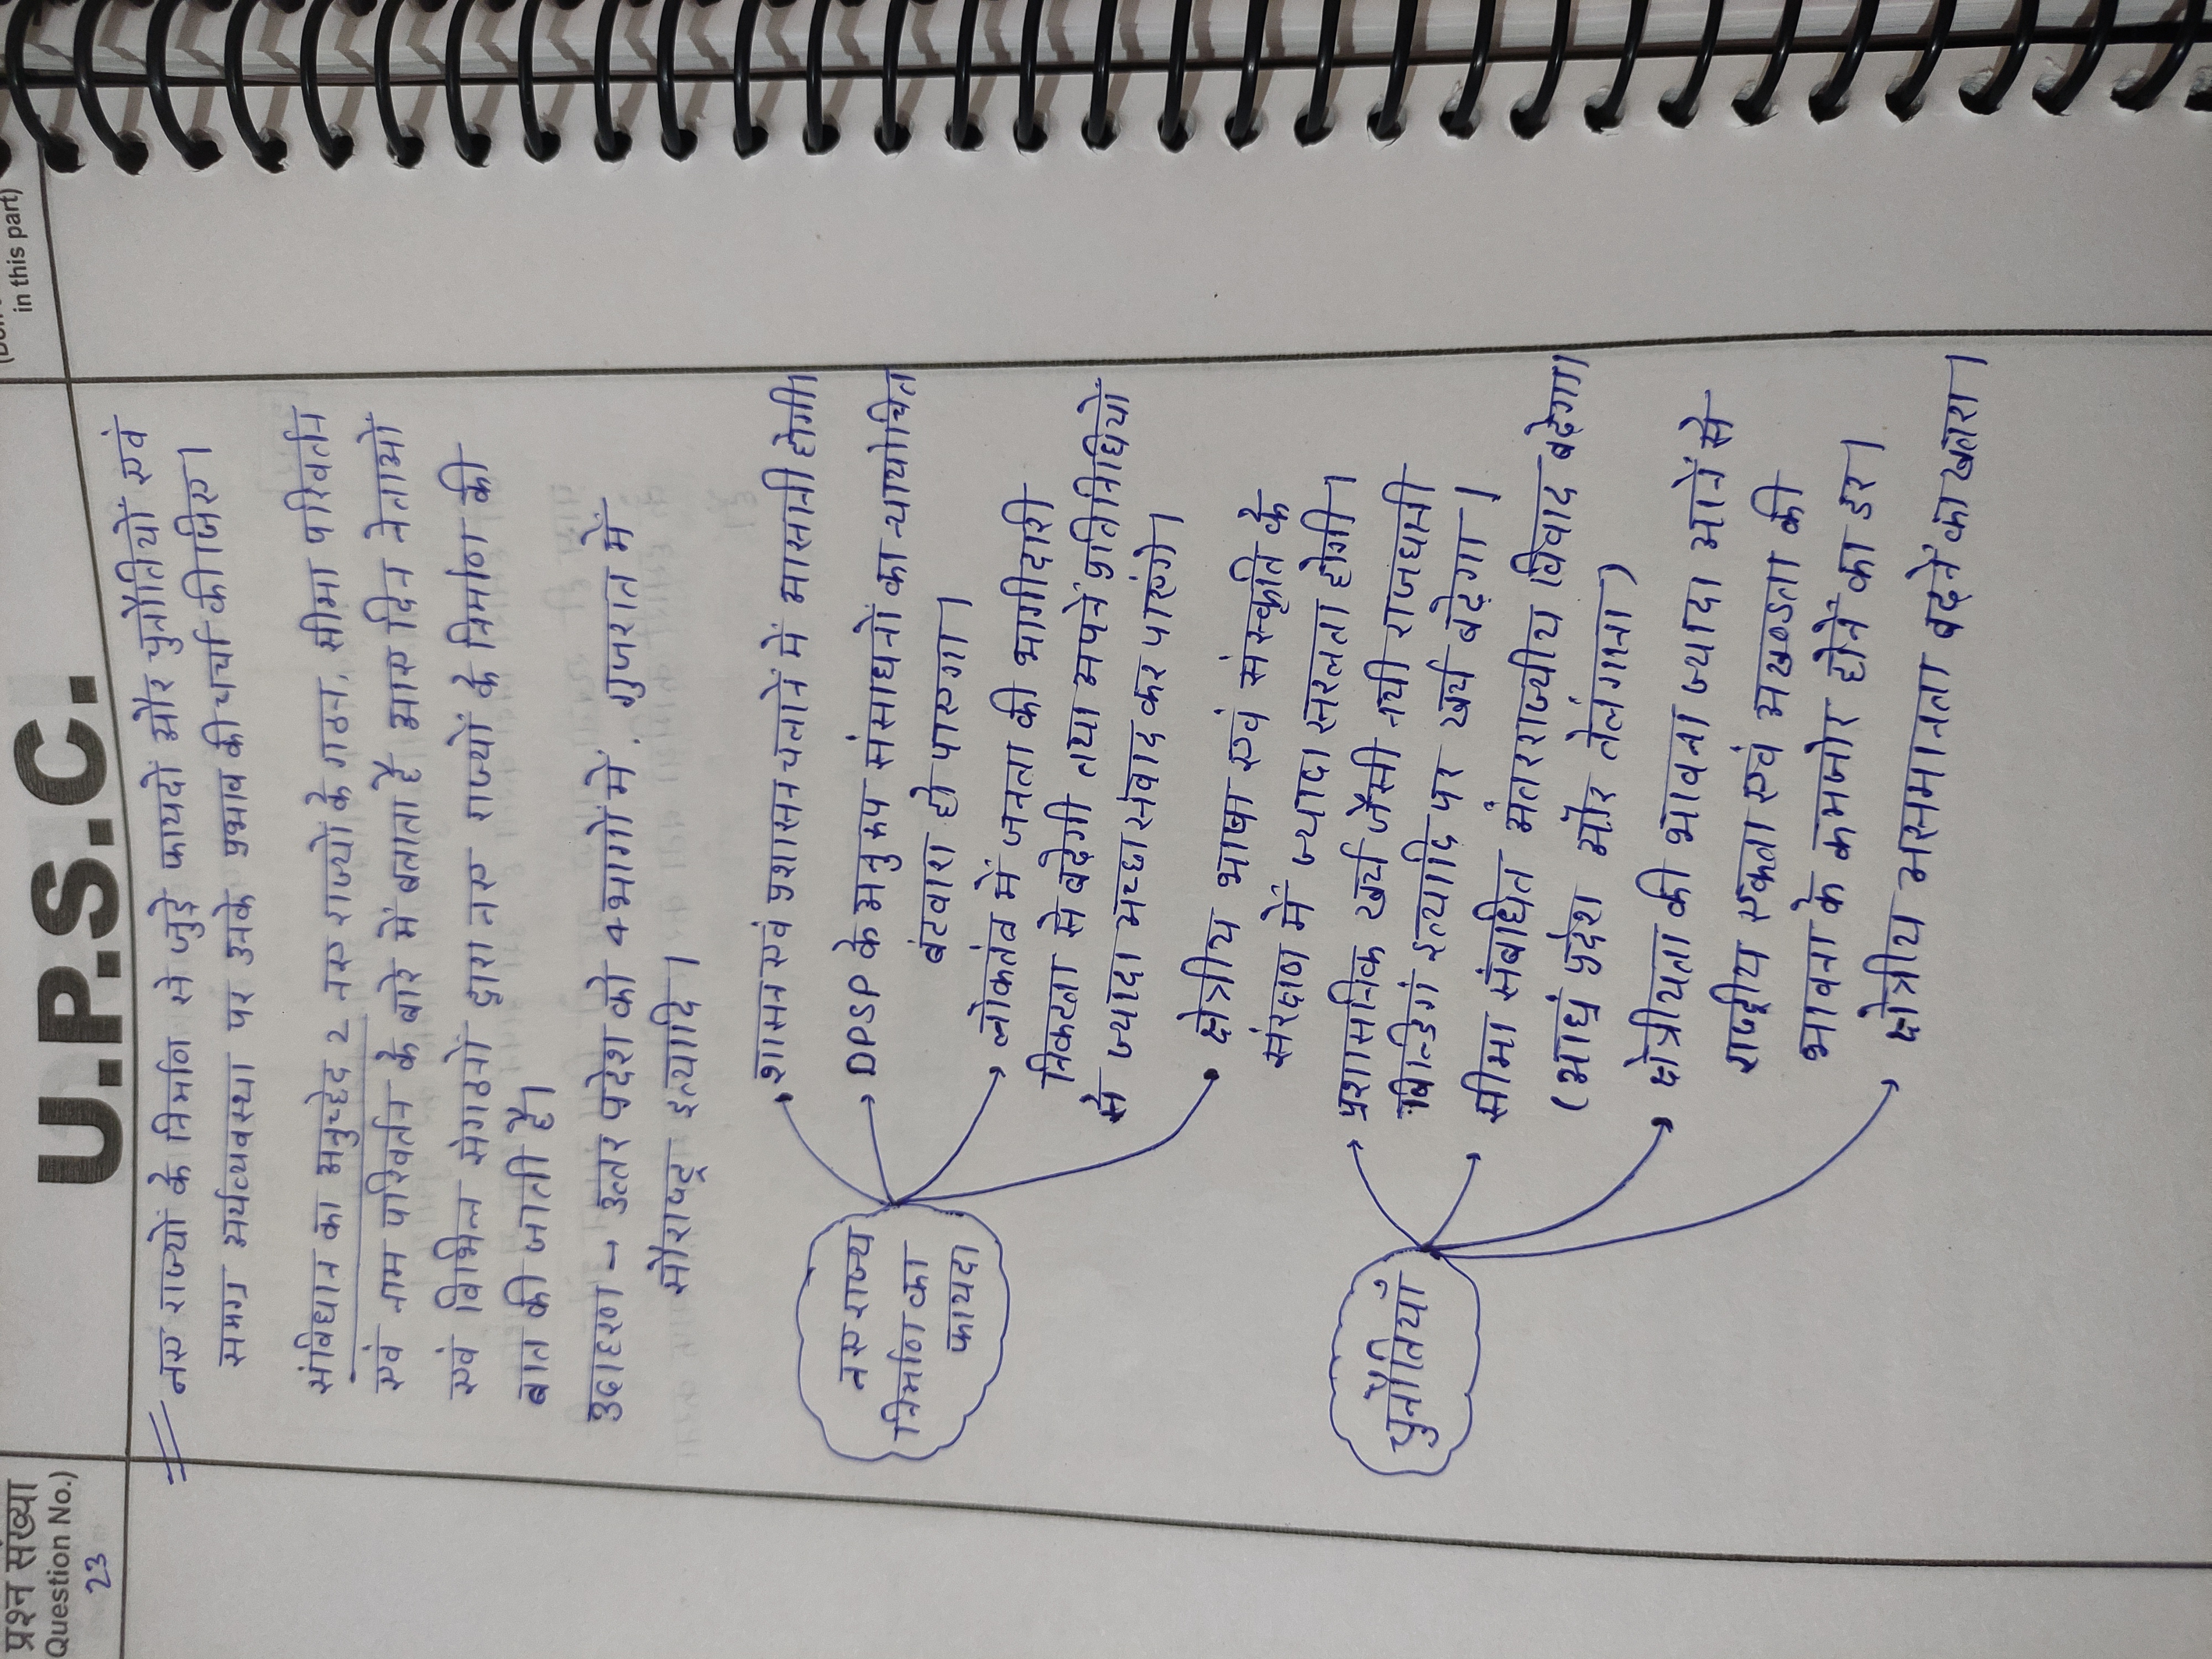 (Don't
in this part)
U.P.S.C.
प्रश्न संख्या
Question No.)
23
नए राज्यों के निर्माण से जुड़े फायदों और चुनौतियों एवं
समग्र अर्थव्यवस्था पर उनके प्रभाव की चर्चा कीजिए।
संविधान का अनुच्छेद 2 नए राज्यों के गठन, सीमा परिवर्तन
एवं नाम परिवर्तन के बारे में बताता है आए दिन नेताओं
एवं विभिन्न संगठनों द्वारा नए राज्यों के निर्माण की
बात की जाती है।
उदाहरण - उत्तर प्रदेश को 4 भागों में, गुजरात में
सौराष्ट्र इत्यादि।
नए राज्य
निर्माण का
फायदा
शासन एवं प्रशासन चलानें में आसानी होगी।
DPSP के अनुरूप संसाधनों का न्यायोचित
बंटवारा हो पाएगा।
लोकतंत्र में जनता की भागीदारी
निकटता से बढ़ेगी तथा अपनें प्रतिनिधियों
से ज्यादा अच्छा संवाद कर पाएंगे।
क्षेत्रीय भाषा एवं संस्कृति के
संरक्षण में ज्यादा सरलता होगी।
चुनौतियाँ
प्रशासनिक खर्च जैसी नयी राजधानी
बिल्डिगं इत्यादि पर खर्च बढ़ेगा।
सीमा संबंधित अंतरराज्यीय विवाद बढ़ेगा
(आध्रं प्रदेश और तेलंगाना)
क्षेत्रीयता की भावना ज्यादा आनें से
राष्ट्रीय एकता एवं अखण्डता की
भावना के कमजोर होनें का डर।
क्षेत्रीय असमानता बढ़नें का खतरा।